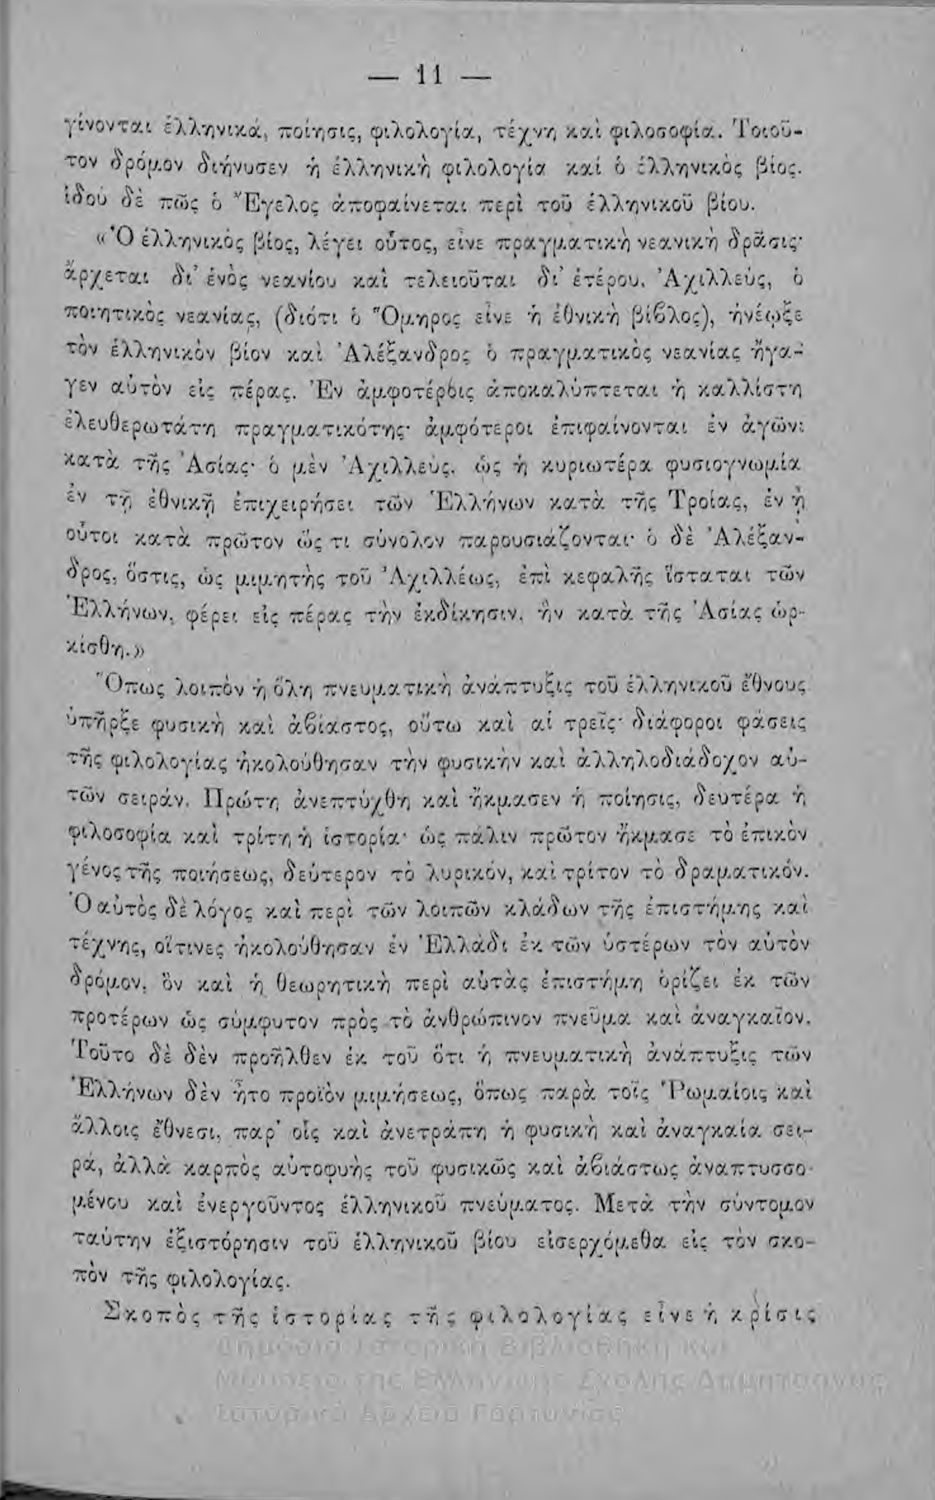 — 11 —
γίνονται ἑλληνικά, ποίησις, φιλολογία, τέχνη καὶ φιλοσοφία. Τοιοῦ-
τον δρόμον διήνυσεν ἡ ἑλληνικὴ φιλολογία καί ὁ ἑλληνικὸς βίος.
ἰδοὺ δὲ πῶς ὁ Ἔγελος ἀποφαίνεται περὶ τοῦ ἑλληνικοῦ βίου.
«Ὁ ἑλληνικὸς βίος, λέγει οὗτος, εἶνε πραγματικὴ νεανικὴ δρᾶσις·
ἄρχεται δι’ ἑνὸς νεανίου καὶ τελειοῦται δι’ ἑτέρου. Ἀχιλλεύς, ὁ
ποιητικὸς νεανίας, (διότι ὁ Ὅμηρος εἶνε ἡ ἐθνικὴ βίβλος), ἠνέῳξε
τὸν ἑλληνικὸν βίον καὶ Ἀλέξανδρος ὁ πραγματικὸς νεανίας ἤγα-
γεν αὐτὸν εἰς πέρας. Ἐν ἀμφοτέροις ἀποκαλύπτεται ἡ καλλίστη
ἐλευθερωτάτη πραγματικότης· ἀμφότεροι ἐπιφαίνονται ἐν ἀγῶνι
κατὰ τῆς Ἀσίας· ὁ μὲν Ἀχιλλεὺς, ὡς ἡ κυριωτέρα φυσιογνωμία
ἐν τῇ ἐθνικῇ ἐπιχειρήσει τῶν Ἑλλήνων κατὰ τῆς Τροίας, ἐν ᾗ
οὗτοι κατὰ πρῶτον ὥς τι σύνολον παρουσιάζονται· ὁ δὲ Ἀλέξαν-
δρος, ὅστις, ὡς μιμητὴς τοῦ Ἀχιλλέως, ἐπὶ κεφαλῆς ἵσταται τῶν
Ἑλλήνων, φέρει εἰς πέρας τὴν ἐκδίκησιν, ἣν κατὰ τῆς Ἀσίας ὡρ-
κίσθη.»
Ὅπως λοιπὸν ἡ ὅλη πνευματικὴ ἀνάπτυξις τοῦ ἑλληνικοῦ ἔθνους
ὑπῆρξε φυσικὴ καὶ ἀβίαστος, οὕτω καὶ αἱ τρεῖς· διάφοροι φάσεις
τῆς φιλολογίας ἠκολούθησαν τὴν φυσικὴν καὶ ἀλληλοδιάδοχον αὐ-
τῶν σειράν. Πρώτη ἀνεπτύχθη καὶ ἤκμασεν ἡ ποίησις, δευτέρα ἡ
φιλοσοφία καὶ τρίτη ἡ ἱστορία· ὡς πάλιν πρῶτον ἤκμασε τὸ ἐπικὸν
γένος τῆς ποιήσεως, δεύτερον τὸ λυρικόν, καὶ τρίτον τὸ δραματικόν.
Ὁ αὐτὸς δὲ λόγος καὶ περὶ τῶν λοιπῶν κλάδων τῆς ἐπιστήμης καὶ
τέχνης, οἵτινες ἠκολούθησαν ἐν Ἑλλάδι ἐκ τῶν ὑστέρων τὸν αὐτὸν
δρόμον, ὃν καὶ ἡ θεωρητικὴ περὶ αὐτὰς ἐπιστήμη ὁρίζει ἐκ τῶν
προτέρων ὡς σύμφυτον πρὸς τὸ ἀνθρώπινον πνεῦμα καὶ ἀναγκαῖον.
Τοῦτο δὲ δὲν προῆλθεν ἐκ τοῦ ὅτι ἡ πνευματικὴ ἀνάπτυξις τῶν
Ἑλλήνων δὲν ἦτο προϊὸν μιμήσεως, ὅπως παρὰ τοῖς Ῥωμαίοις καὶ
ἄλλοις ἔθνεσι, παρ’ οἷς καὶ ἀνετράπη ἡ φυσικὴ καὶ ἀναγκαία σει-
ρά, ἀλλὰ καρπὸς αὐτοφυὴς τοῦ φυσικῶς καὶ ἀβιάστως ἀναπτυσσο-
μένου καὶ ἐνεργοῦντος ἑλληνικοῦ πνεύματος. Μετὰ τὴν σύντομον
ταύτην ἐξιστόρησιν τοῦ ἑλληνικοῦ βίου εἰσερχόμεθα εἰς τὸν σκο-
πὸν τῆς φιλολογίας.
Σκοπὸς τῆς ἱστορίας τῆς φιλολογίας εἶνε ἡ κρίσις
Δημόσια Ιστορική Βιβλιοθήκη και
Μουσείο της Ελληνικής Σχολής Δημητσάνας
Ιστορικό Αρχείο Γορτυνίας